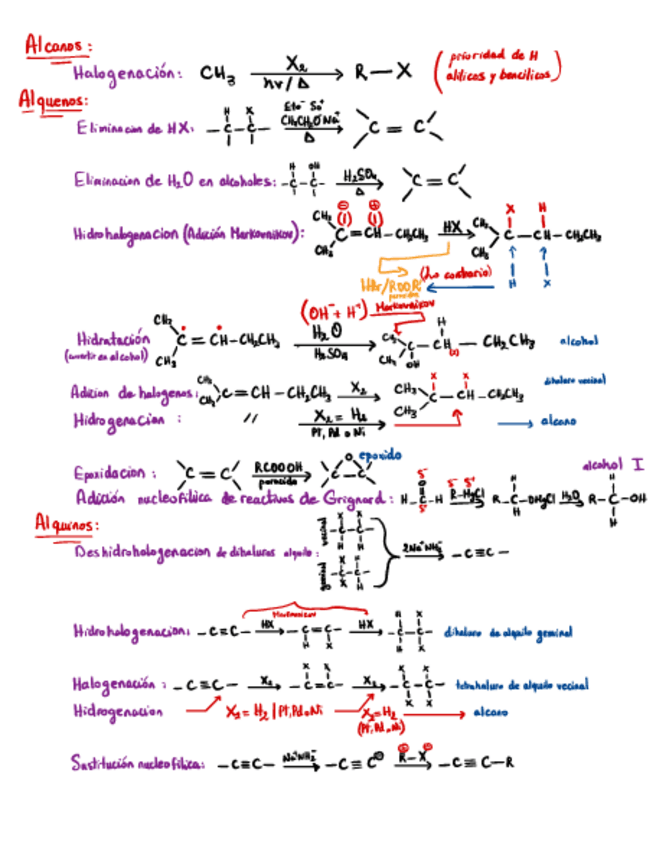 Alcanos:
Halogenación: CH₃ X₂ hv/Δ R—X (prioridad de H alílicos y bencílicos)
Alquenos:
Eliminación de HX: H X –C–C– Eto⁻ Na⁺ CH₃CH₂O⁻Na⁺ Δ C=C
Eliminación de H₂O en alcoholes: H OH –C–C– H₂SO₄ Δ C=C
Hidrohalogenacion (Adición Markovnikov): CH₃ CH₃ C=CH–CH₂CH₃ HX CH₃ CH₃ X H C–CH–CH₂CH₃
HBr/ROOR peroxido (Lo contrario) H X
(OH⁻ + H⁺) Markovnikov
Hidratación (convertir en alcohol) CH₃ CH₃ C=CH–CH₂CH₃ H₂O H₂SO₄ CH₃ CH₃ C OH H CH — CH₂CH₃ alcohol
Adicion de halogenos: CH₃ CH₃ C=CH–CH₂CH₃ X₂ CH₃ CH₃ X X C–CH–CH₂CH₃ dihaluro vecinal
Hidrogenacion : // X₂ = H₂ Pt, Pd o Ni alcano
Epoxidacion : C=C RCOOOH peroxido O C–C epoxido
Adición nucleofílica de reactivos de Grignard: H–C–H O δ⁻ δ⁺ δ⁻ δ⁺ R–MgCl R–C–OMgCl H H H₂O R–C–OH H H alcohol I
Alquinos:
Deshidrohalogenacion de dihaluros alquilo: vecinal X X –C–C– H H geminal X H –C–C– X H 2Na⁺NH₂⁻ –C≡C–
Hidrohalogenacion: –C≡C– HX –C=C– H X HX H X –C–C– H X Markovnikov dihaluro de alquilo geminal
Halogenación : –C≡C– X₂ X X –C=C– X₂ X X –C–C– X X tetrahaluro de alquilo vecinal
Hidrogenacion X₂ = H₂ | Pt, Pd o Ni X₂=H₂ (Pt, Pd, o Ni) alcano
Sustitución nucleofílica: –C≡C– Na⁺NH₂⁻ –C≡C⊖ ⊕ ⊖ R–X –C≡C–R